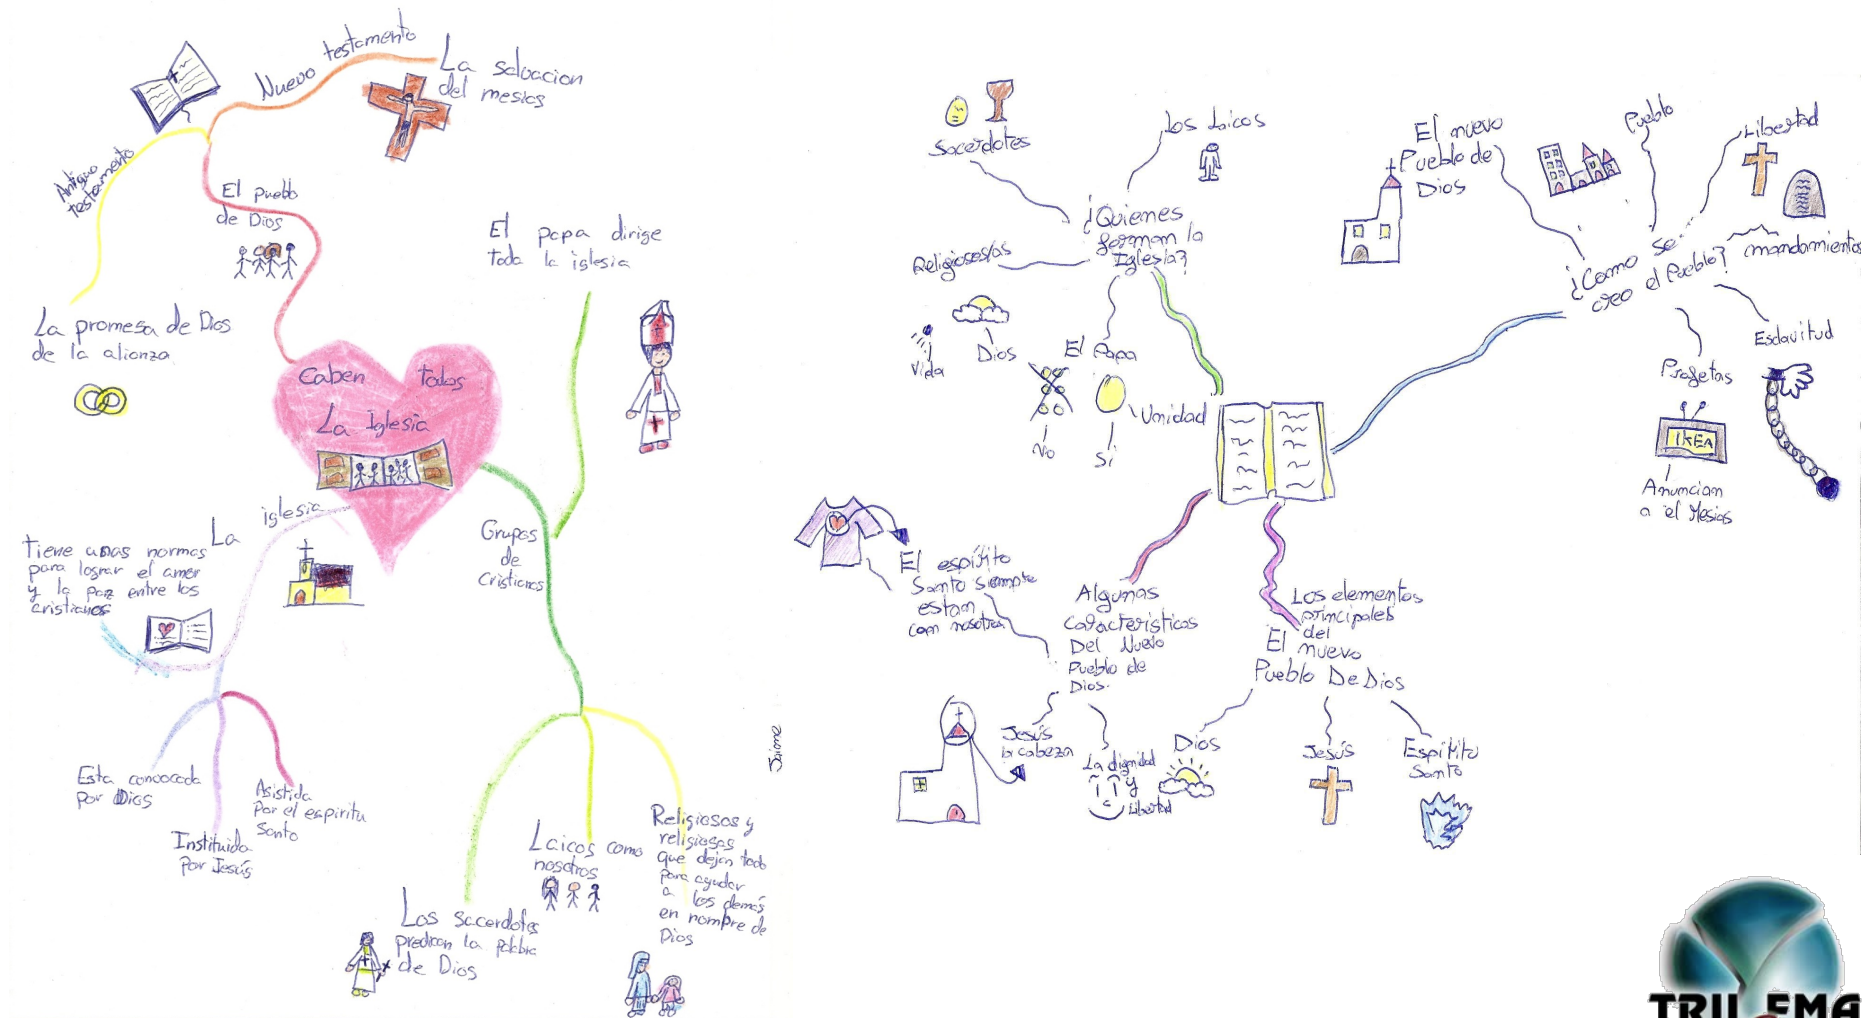 Nuevo testamento
La salvacion
del mesias
Antiguo
testamento
El pueblo
de Dios
La promesa de Dios
de la alianza
El papa dirige
toda la iglesia
Caben todos
La Iglesia
La iglesia
Tiene unas normas
para lograr el amor
y la paz entre los
cristianos
Grupos
de
Cristianos
Esta convocada
por Dios
Instituida
por Jesús
Asistida
Por el espiritu
Santo
Los sacerdotes
predican la palabra
de Dios
Laicos como
nosotros
Religiosos y
religiosas
que dejan todo
para ayudar
a los demás
en nombre de
Dios
Jaime
Sacerdotes
Los Laicos
¿Quienes
forman la
Iglesia?
Religiosos/as
Vida
Dios
El Papa
No
Sí
Unidad
El nuevo
Pueblo de
Dios
Pueblo
Libertad
mandamientos
¿Como se
creo el Pueblo?
Esclavitud
Profetas
IKEA
Anuncian
a el Mesias
El espíritu
Santo siempre
estan
con nosotros
Algunas
características
Del Nuevo
Pueblo de
Dios.
Jesús
la cabeza
La dignidad
y
Libertad
Los elementos
principales
del
El nuevo
Pueblo De Dios
Dios
Jesús
Espíritu
Santo
TRILEMA